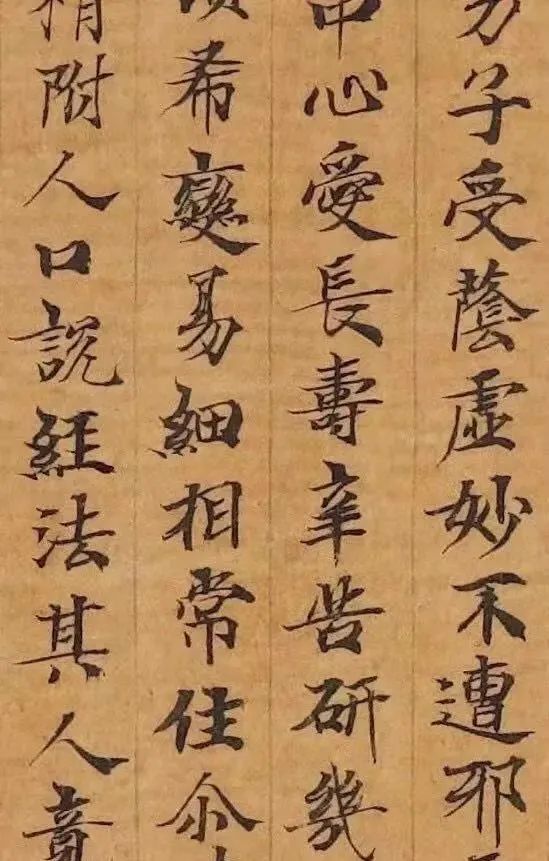 子受蔭虛妙不遭邪
中心愛長壽辛苦研幾
希變易細相常住尒
精附人口說經法其人竟